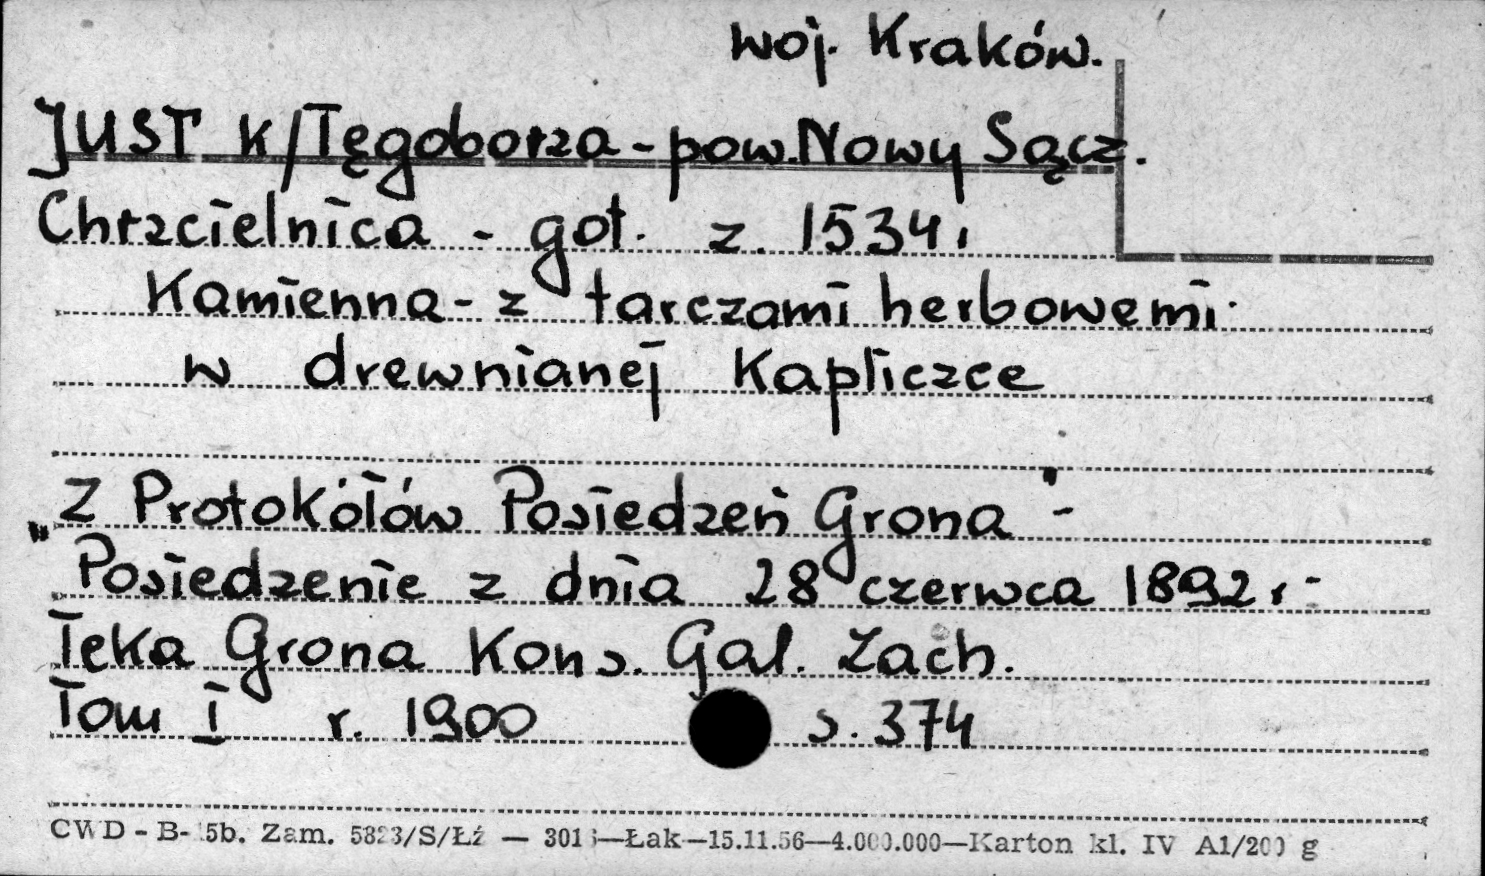 woj. Kraków.
JUST k/Tęgoborza - pow. Nowy Sącz.
Chrzcielnica - got. z. 1534 r
Kamienna - z tarczami herbowemi.
w drewnianej Kapliczce
„Z Protokółów Posiedzeń Grona" -
Posiedzenie z dnia 28 czerwca 1892 r -
Teka Grona Kons. Gal. Zach.
Tom I r. 1900 s. 374
CWD - B- 5b. Zam. 5823/S/Łź — 3016—Łak—15.11.56—4.000.000—Karton kl. IV A1/200 g